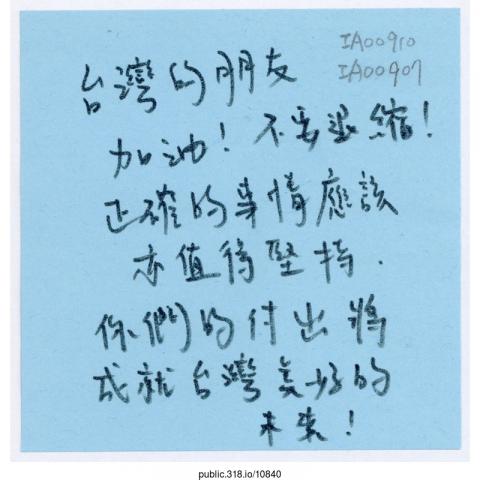 IA00910
IA00907
台灣的朋友
加油！不要退縮！
正確的事情應該
亦值得堅持．
你們的付出將
成就台灣美好的
未來！
public.318.io/10840